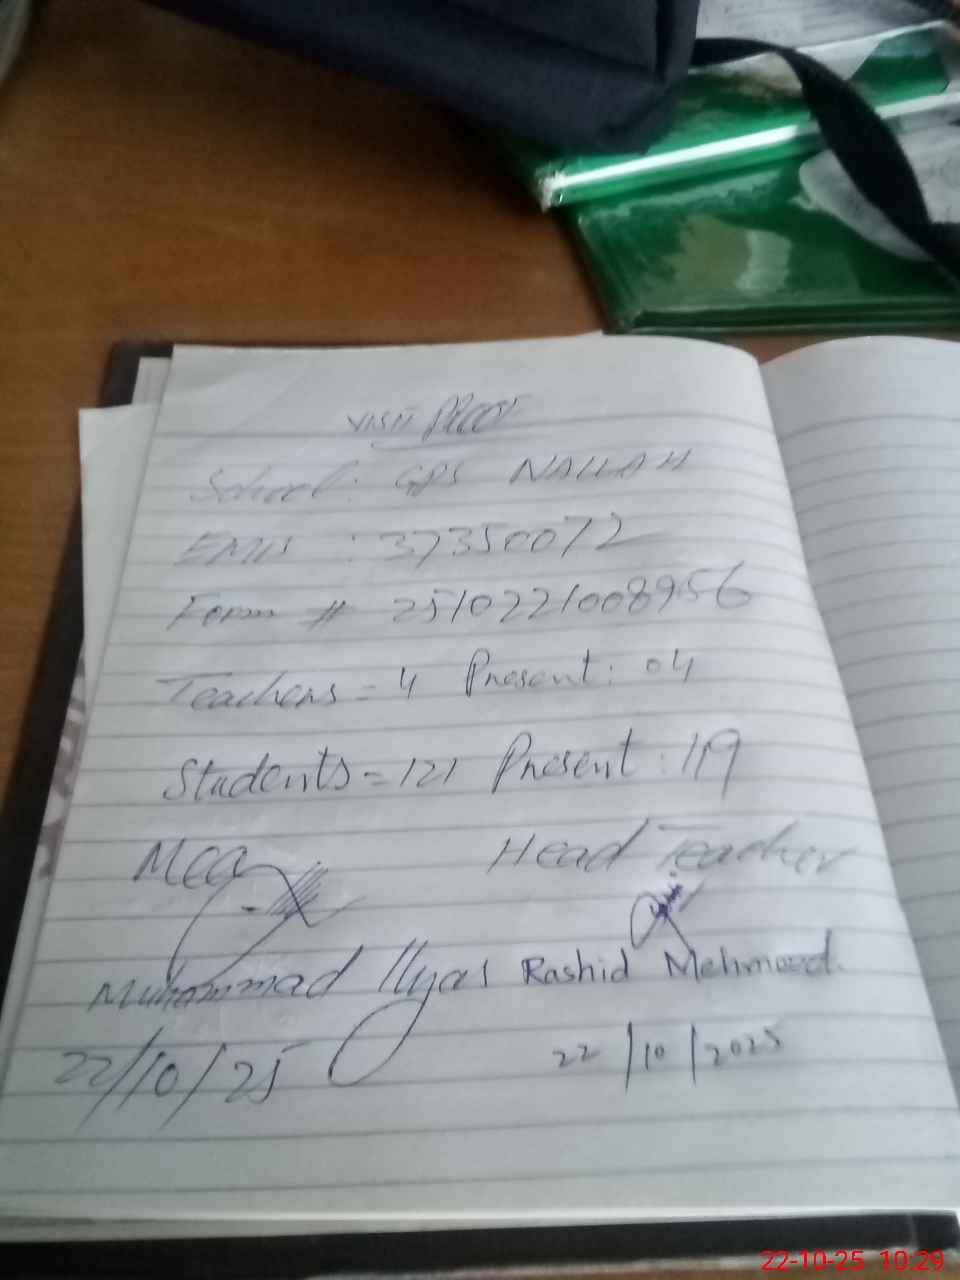 VISIT Proof
School: GPS NALLAH
EMIS : 37350072
Form # 2510221008956
Teachers = 4 Present: 04
Students = 121 Present: 119
MEA Head Teacher
Muhammad Ilyas Rashid Mehmood.
22/10/25 22/10/2025
22-10-25 10:29